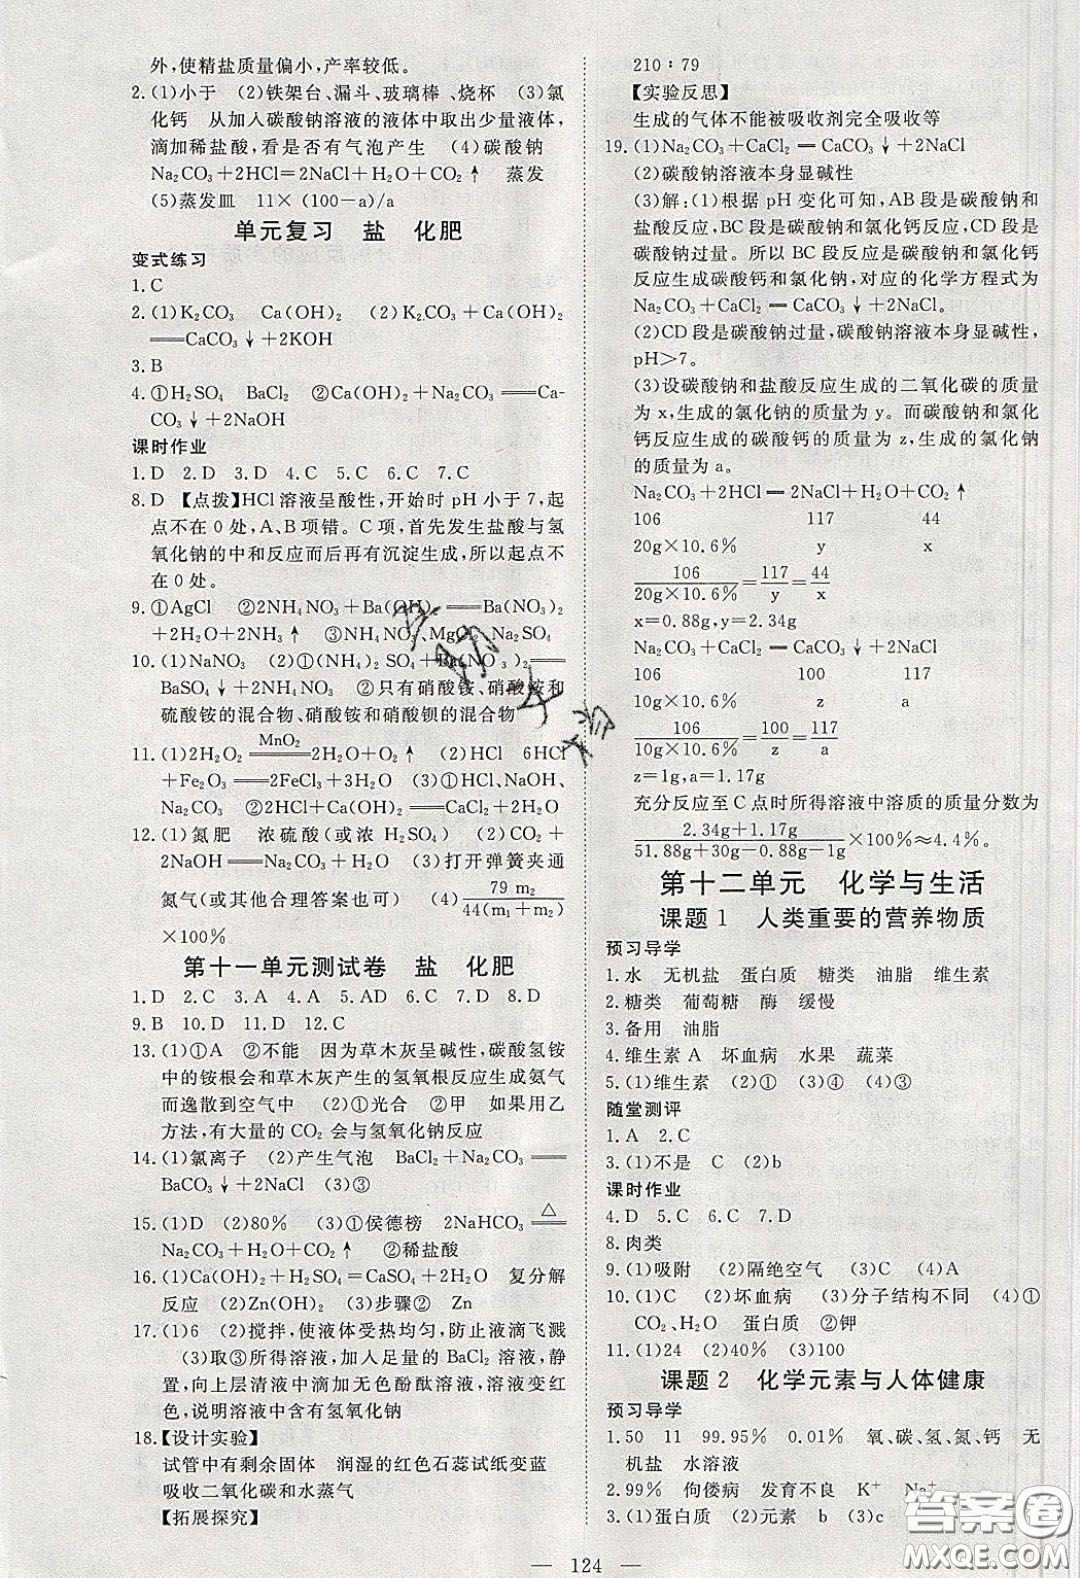 外,使精盐质量偏小,产率较低。
2.(1)小于 (2)铁架台、漏斗、玻璃棒、烧杯 (3)氯
化钙 从加入碳酸钠溶液的液体中取出少量液体,
滴加稀盐酸,看是否有气泡产生 (4)碳酸钠
Na₂CO₃+2HCl=2NaCl+H₂O+CO₂↑ 蒸发
(5)蒸发皿 11×(100-a)/a
单元复习 盐 化肥
变式练习
1.C
2.(1)K₂CO₃ Ca(OH)₂ (2)K₂CO₃+Ca(OH)₂
══CaCO₃↓+2KOH
3.B
4.①H₂SO₄ BaCl₂ ②Ca(OH)₂+Na₂CO₃══Ca-
CO₃↓+2NaOH
课时作业
1.D 2.D 3.D 4.C 5.C 6.C 7.C
8.D 【点拨】HCl溶液呈酸性,开始时pH小于7,起
点不在0处,A、B项错。C项,首先发生盐酸与氢
氧化钠的中和反应而后再有沉淀生成,所以起点不
在0处。
9.①AgCl ②2NH₄NO₃+Ba(OH)₂══Ba(NO₃)₂
+2H₂O+2NH₃↑ ③NH₄NO₃、MgCl₂、Na₂SO₄
10.(1)NaNO₃ (2)①(NH₄)₂SO₄+Ba(NO₃)₂══
BaSO₄↓+2NH₄NO₃ ②只有硝酸铵、硝酸铵和
硫酸铵的混合物、硝酸铵和硝酸钡的混合物
11.(1)2H₂O₂ MnO₂══ 2H₂O+O₂↑ (2)HCl 6HCl
+Fe₂O₃══2FeCl₃+3H₂O (3)①HCl、NaOH、
Na₂CO₃ ②2HCl+Ca(OH)₂══CaCl₂+2H₂O
12.(1)氮肥 浓硫酸(或浓 H₂SO₄) (2)CO₂+
2NaOH══Na₂CO₃+H₂O (3)打开弹簧夹通
氮气(或其他合理答案也可) (4)79 m₂/44(m₁+m₂)
×100%
第十一单元测试卷 盐 化肥
1.D 2.C 3.A 4.A 5.AD 6.C 7.D 8.D
9.B 10.D 11.D 12.C
13.(1)①A ②不能 因为草木灰呈碱性,碳酸氢铵
中的铵根会和草木灰产生的氢氧根反应生成氨气
而逸散到空气中 (2)①光合 ②甲 如果用乙
方法,有大量的CO₂会与氢氧化钠反应
14.(1)氯离子 (2)产生气泡 BaCl₂+Na₂CO₃══
BaCO₃↓+2NaCl (3)③
15.(1)D (2)80% (3)①侯德榜 2NaHCO₃ △══
Na₂CO₃+H₂O+CO₂↑ ②稀盐酸
16.(1)Ca(OH)₂+H₂SO₄=CaSO₄+2H₂O 复分解
反应 (2)Zn(OH)₂ (3)步骤② Zn
17.(1)6 (2)搅拌,使液体受热均匀,防止液滴飞溅
(3)取③所得溶液,加入足量的BaCl₂溶液,静
置,向上层清液中滴加无色酚酞溶液,溶液变红
色,说明溶液中含有氢氧化钠
18.【设计实验】
试管中有剩余固体 润湿的红色石蕊试纸变蓝
吸收二氧化碳和水蒸气
【拓展探究】
210∶79
【实验反思】
生成的气体不能被吸收剂完全吸收等
19.(1)Na₂CO₃+CaCl₂══CaCO₃↓+2NaCl
(2)碳酸钠溶液本身显碱性
(3)解:(1)根据pH变化可知,AB段是碳酸钠和
盐酸反应,BC段是碳酸钠和氯化钙反应,CD段是
碳酸钠过量。所以BC段反应是碳酸钠和氯化钙
反应生成碳酸钙和氯化钠,对应的化学方程式为
Na₂CO₃+CaCl₂══CaCO₃↓+2NaCl。
(2)CD段是碳酸钠过量,碳酸钠溶液本身显碱性,
pH>7。
(3)设碳酸钠和盐酸反应生成的二氧化碳的质量
为x,生成的氯化钠的质量为y。而碳酸钠和氯化
钙反应生成的碳酸钙的质量为z,生成的氯化钠
的质量为a。
Na₂CO₃+2HCl══2NaCl+H₂O+CO₂↑
106 117 44
20g×10.6% y x
106/20g×10.6%=117/y=44/x
x=0.88g,y=2.34g
Na₂CO₃+CaCl₂══CaCO₃↓+2NaCl
106 100 117
10g×10.6% z a
106/10g×10.6%=100/z=117/a
z=1g,a=1.17g
充分反应至C点时所得溶液中溶质的质量分数为
2.34g+1.17g/51.88g+30g-0.88g-1g×100%≈4.4%。
第十二单元 化学与生活
课题1 人类重要的营养物质
预习导学
1.水 无机盐 蛋白质 糖类 油脂 维生素
2.糖类 葡萄糖 酶 缓慢
3.备用 油脂
4.维生素A 坏血病 水果 蔬菜
5.(1)维生素 (2)① (3)④ (4)③
随堂测评
1.A 2.C
3.(1)不是 C (2)b
课时作业
4.D 5.C 6.C 7.D
8.肉类
9.(1)吸附 (2)隔绝空气 (3)C (4)A
10.(1)C (2)坏血病 (3)分子结构不同 (4)①
CO₂、H₂O 蛋白质 ②钾
11.(1)24 (2)40% (3)100
课题2 化学元素与人体健康
预习导学
1.50 11 99.95% 0.01% 氧、碳、氢、氮、钙 无
机盐 水溶液
2.99% 佝偻病 发育不良 K⁺ Na⁺
3.(1)蛋白质 (2)元素 b (3)c
— 124 —
答案圈
MXQE.COM